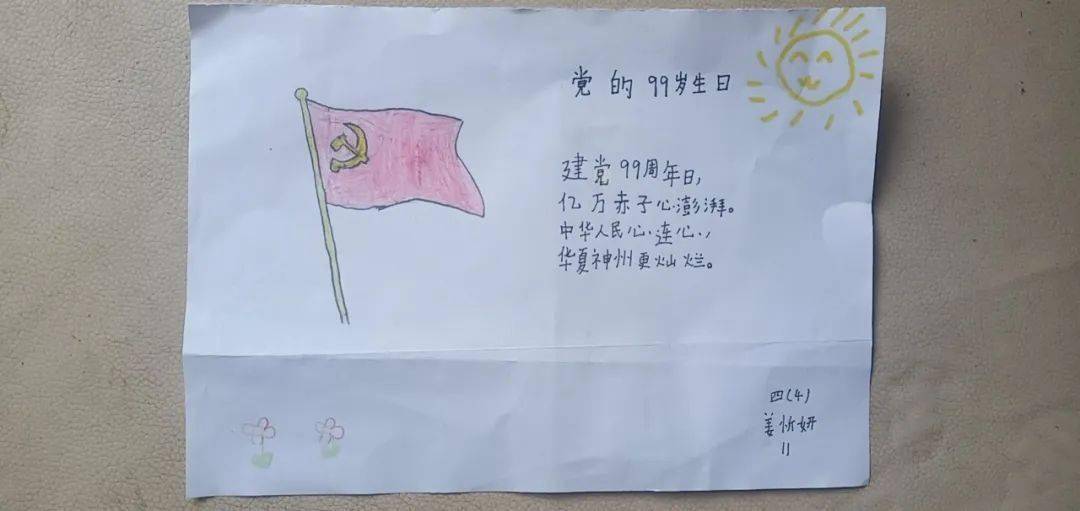 党的99岁生日
建党99周年日,
亿万赤子心澎湃。
中华人民心连心,
华夏神州更灿烂。
四(4)
姜忻妍
11